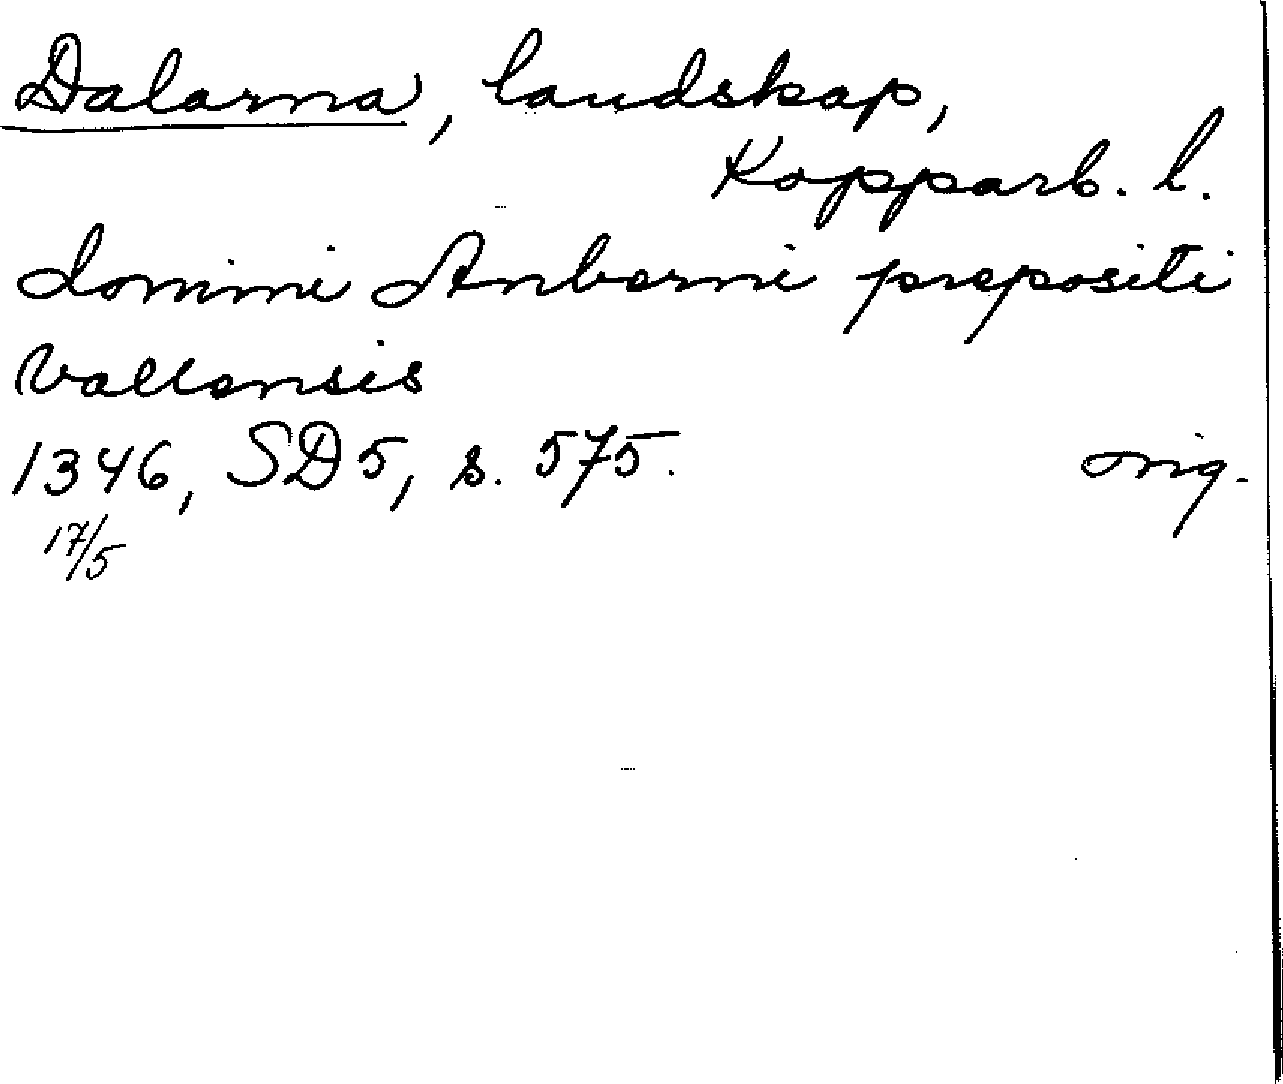 Dalarna, landskap,
Kopparb. l.
domini Anberni prepositi
Vallensis
1346, SD 5, s. 575. orig.
17/5